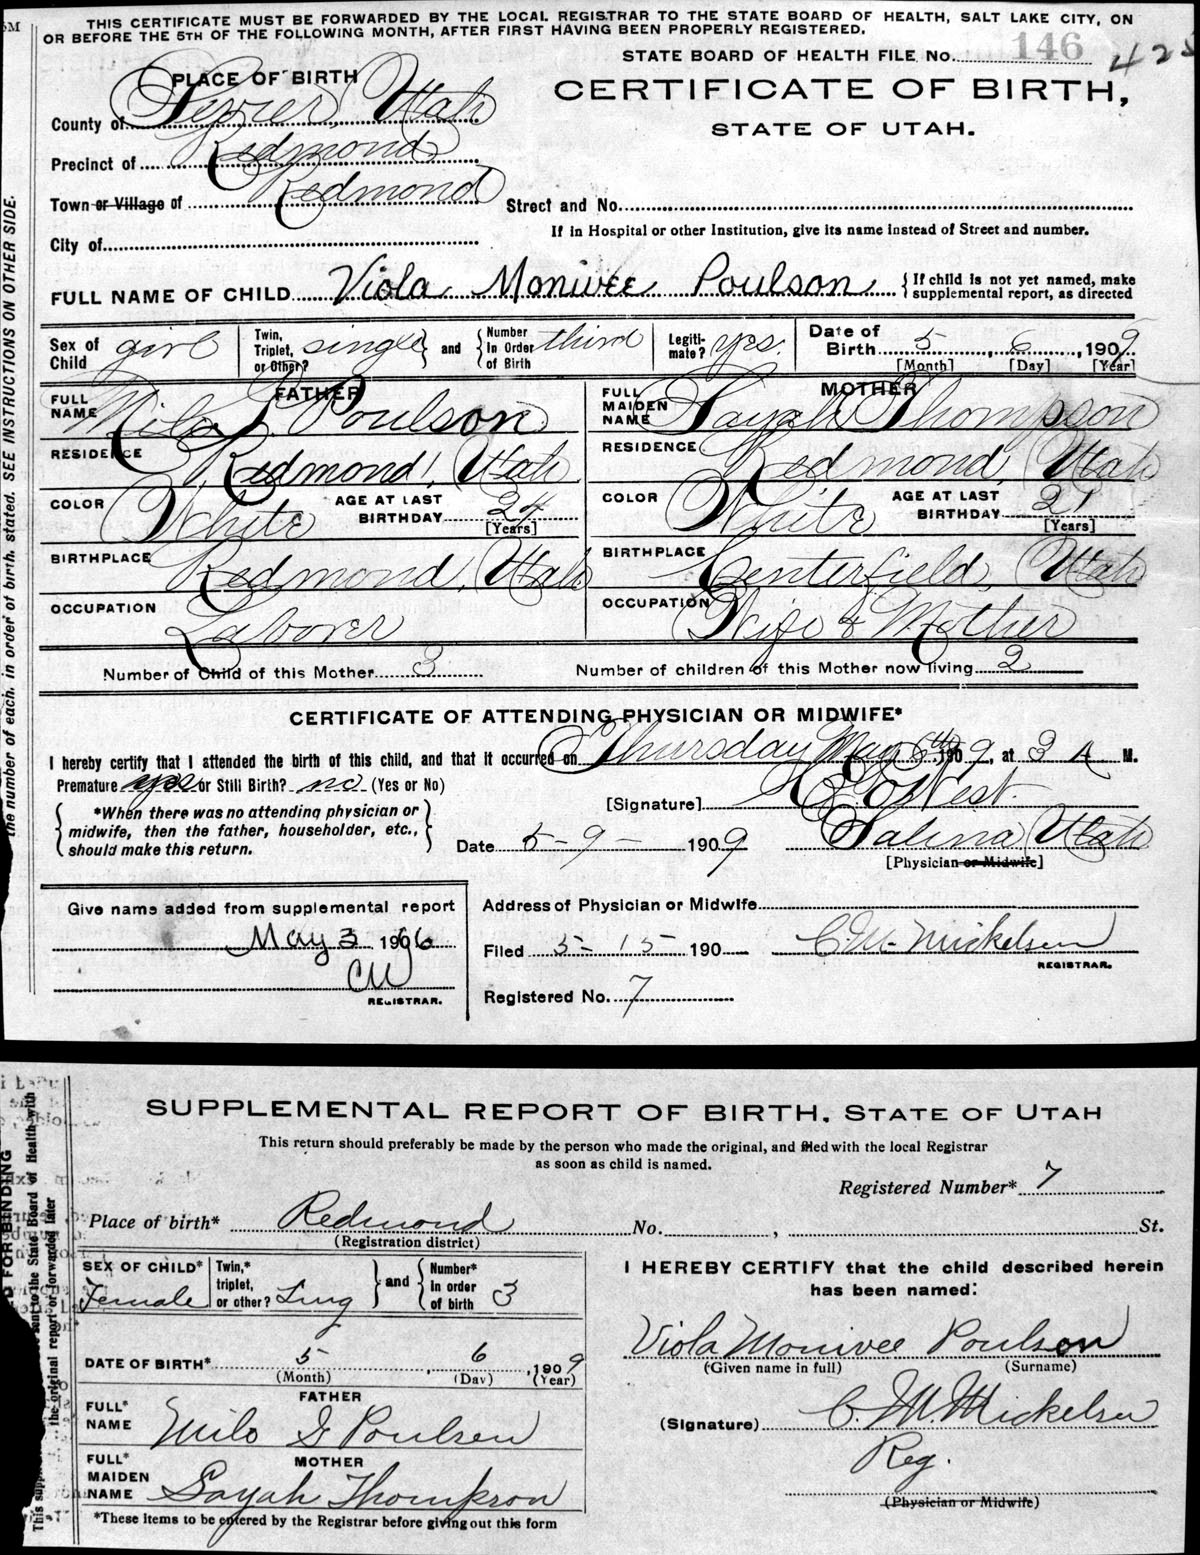 THIS CERTIFICATE MUST BE FORWARDED BY THE LOCAL REGISTRAR TO THE STATE BOARD OF HEALTH, SALT LAKE CITY, ON
OR BEFORE THE 5TH OF THE FOLLOWING MONTH, AFTER FIRST HAVING BEEN PROPERLY REGISTERED.
STATE BOARD OF HEALTH FILE No. 146 423
PLACE OF BIRTH
CERTIFICATE OF BIRTH,
STATE OF UTAH.
County of Sevier, Utah
Precinct of Redmond
Town or Village of Redmond
Street and No.
City of
If in Hospital or other Institution, give its name instead of Street and number.
FULL NAME OF CHILD Viola Monivee Poulson {If child is not yet named, make supplemental report, as directed
Sex of Child girl Twin, Triplet, or Other? single and Number In Order of Birth third Legiti-mate? yes. Date of Birth 5, 6, 1909
[Month] [Day] [Year]
FATHER MOTHER
FULL NAME Milo G. Poulson FULL MAIDEN NAME Sayah Thompson
RESIDENCE Redmond, Utah RESIDENCE Redmond, Utah
COLOR White AGE AT LAST BIRTHDAY 24 [Years] COLOR White AGE AT LAST BIRTHDAY 21 [Years]
BIRTHPLACE Redmond, Utah BIRTHPLACE Centerfield, Utah
OCCUPATION Laborer OCCUPATION Wife & Mother
Number of Child of this Mother 3 Number of children of this Mother now living 2
CERTIFICATE OF ATTENDING PHYSICIAN OR MIDWIFE*
I hereby certify that I attended the birth of this child, and that it occurred on Thursday May 6th 1909, at 3 A M.
Premature yes or Still Birth? no (Yes or No)
[Signature] West
*When there was no attending physician or midwife, then the father, householder, etc., should make this return.
Date 5-9- 1909 Salina Utah
[Physician or Midwife]
Give name added from supplemental report
Address of Physician or Midwife
May 3 1966
Filed 5-15 190 C.M. Mickelsen
CM
REGISTRAR.
REGISTRAR.
Registered No. 7
the number of each, in order of birth, stated. SEE INSTRUCTIONS ON OTHER SIDE.
SUPPLEMENTAL REPORT OF BIRTH, STATE OF UTAH
This return should preferably be made by the person who made the original, and filed with the local Registrar
as soon as child is named.
Registered Number* 7
Place of birth* Redmond No. , St.
(Registration district)
SEX OF CHILD* Female Twin,* triplet, or other? Sing and Number* in order of birth 3
I HEREBY CERTIFY that the child described herein
has been named:
Viola Monivee Poulson
(Given name in full) (Surname)
DATE OF BIRTH* 5, 6, 1909
(Month) (Day) (Year)
FATHER
FULL* NAME Milo G Poulsen
(Signature) C. M. Mickelsen
Reg.
MOTHER
FULL* MAIDEN NAME Sayah Thompson
(Physician or Midwife)
*These items to be entered by the Registrar before giving out this form